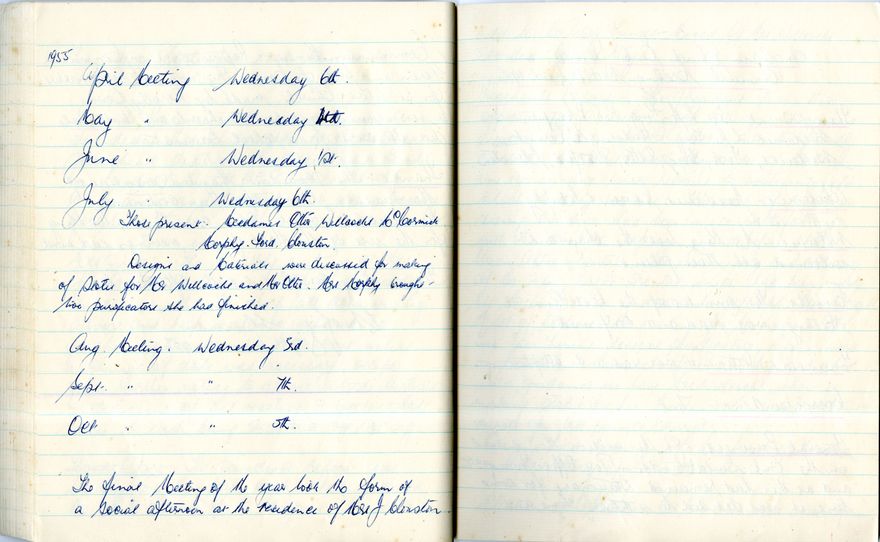 1955
April Meeting Wednesday 6th.
May " Wednesday 4th.
June " Wednesday 1st.
July " Wednesday 6th.
Those present. Mesdames Otter Willcocks McCormick
Morphy. Ford. Clouston.
Designs and Materials were discussed for making
of Stoles for Mrs Willcocks and Mrs Otter. Mrs Morphy brought
two purificators she had finished.
Aug. Meeting. Wednesday 3rd.
Sept. " " 7th.
Oct " " 5th.
The final Meeting of the year took the form of
a social afternoon at the residence of Mrs J Clouston.